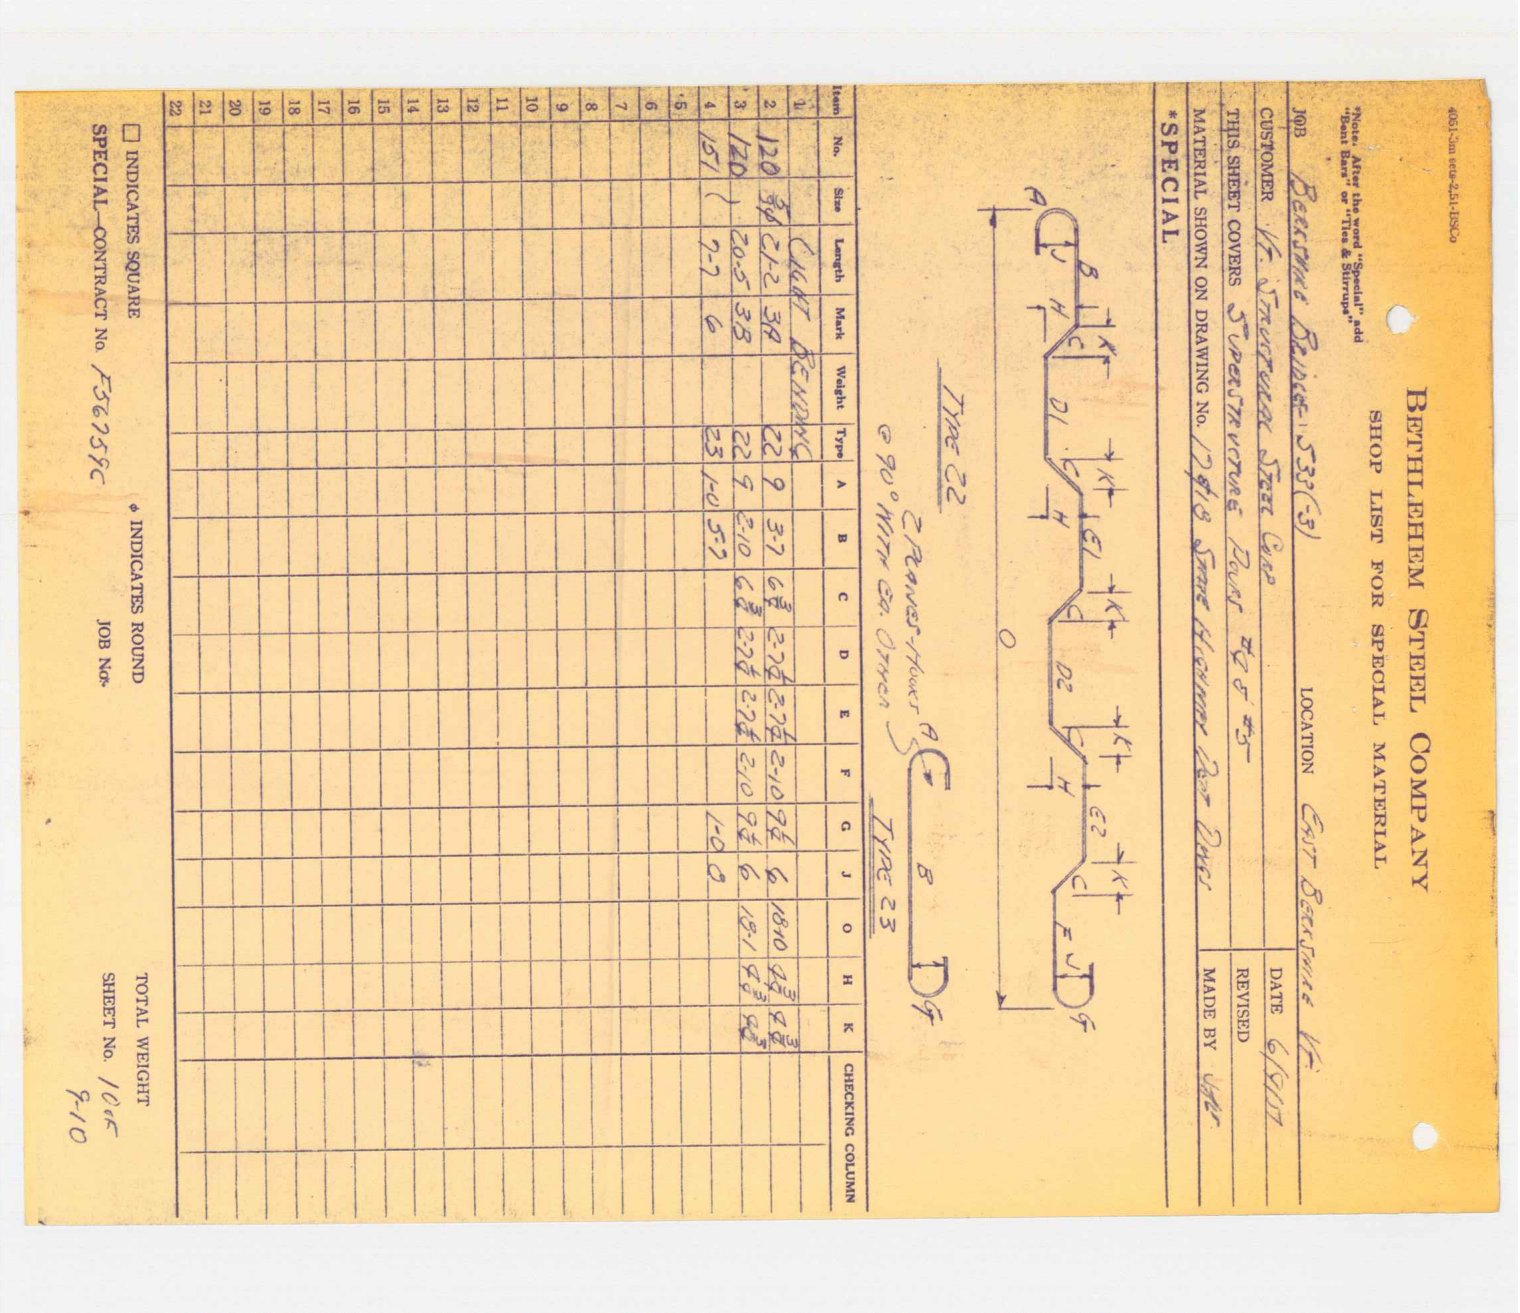 4051-3m sets-2,51-BSCo
BETHLEHEM STEEL COMPANY
SHOP LIST FOR SPECIAL MATERIAL
*Note. After the word "Special" add
"Bent Bars" or "Ties & Stirrups"
JOB BERKSHIRE BRIDGE: S33(-3) LOCATION EAST BERKSHIRE VT.
CUSTOMER VT. STRUCTURAL STEEL CORP DATE
THIS SHEET COVERS SUPERSTRUCTURE POURS REVISED
MATERIAL SHOWN ON DRAWING No. STATE HIGHWAY DEPT DWGS MADE BY
*SPECIAL
A J B H K C D1 C K H E1 K C D2 C K H E2 K C F J G
O
TYPE 22
2 PLANES-HOOKS
@ 90° WITH EA. OTHER
A B G
TYPE 23
Item No. Size Length Mark Weight Type A B C D E F G J O H K CHECKING COLUMN
1 LIGHT BENDING
2 120 21-2 3A 22 9 3-7 6 3/8 2-7 1/2 2-7 1/2 2-10 9 1/2 6 18-10 4 3/8 4 3/8
3 120 20-5 3B 22 9 2-10 6 3/8 2-7 1/2 2-7 1/2 2-10 9 1/2 6 18-1 4 3/8 4 3/8
4 151 7-7 6 23 1-0 5-7 1-0 8
5
6
7
8
9
10
11
12
13
14
15
16
17
18
19
20
21
22
☐ INDICATES SQUARE ϕ INDICATES ROUND TOTAL WEIGHT
SPECIAL—CONTRACT No. F56759C JOB No. SHEET No. 10 OF
9-10